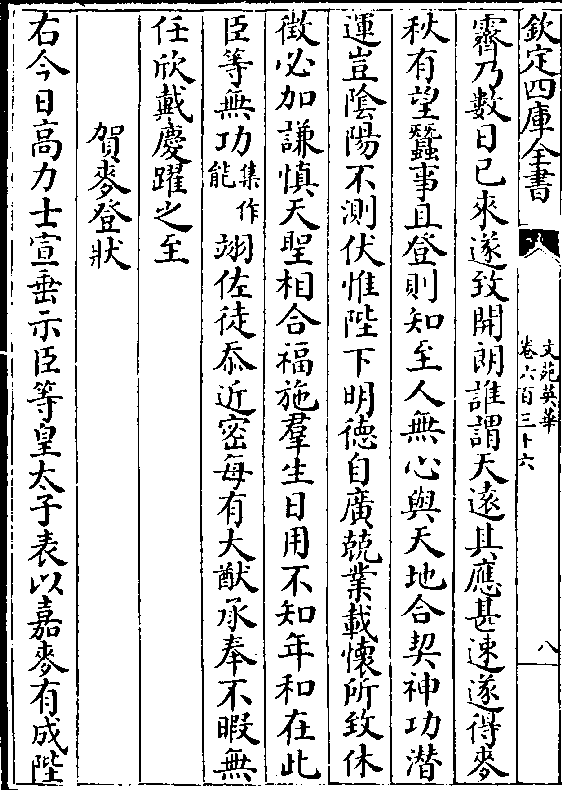 欽定四庫全書
文苑英華
卷六百三十六
八
霽乃數日已來遂致開朗誰謂天遠其應甚速遂得麥
秋有望蠶事且登則知至人無心與天地合契神功潛
運豈隂陽不測伏惟陛下明德自廣兢業載懷所致休
徴必加謙慎天聖相合福施羣生日用不知年和在此
臣等無功集作能翊佐徒忝近密每有大猷承奉不暇無
任欣戴慶躍之至
賀麥登狀
右今日高力士宣垂示臣等皇太子表以嘉麥有成陛